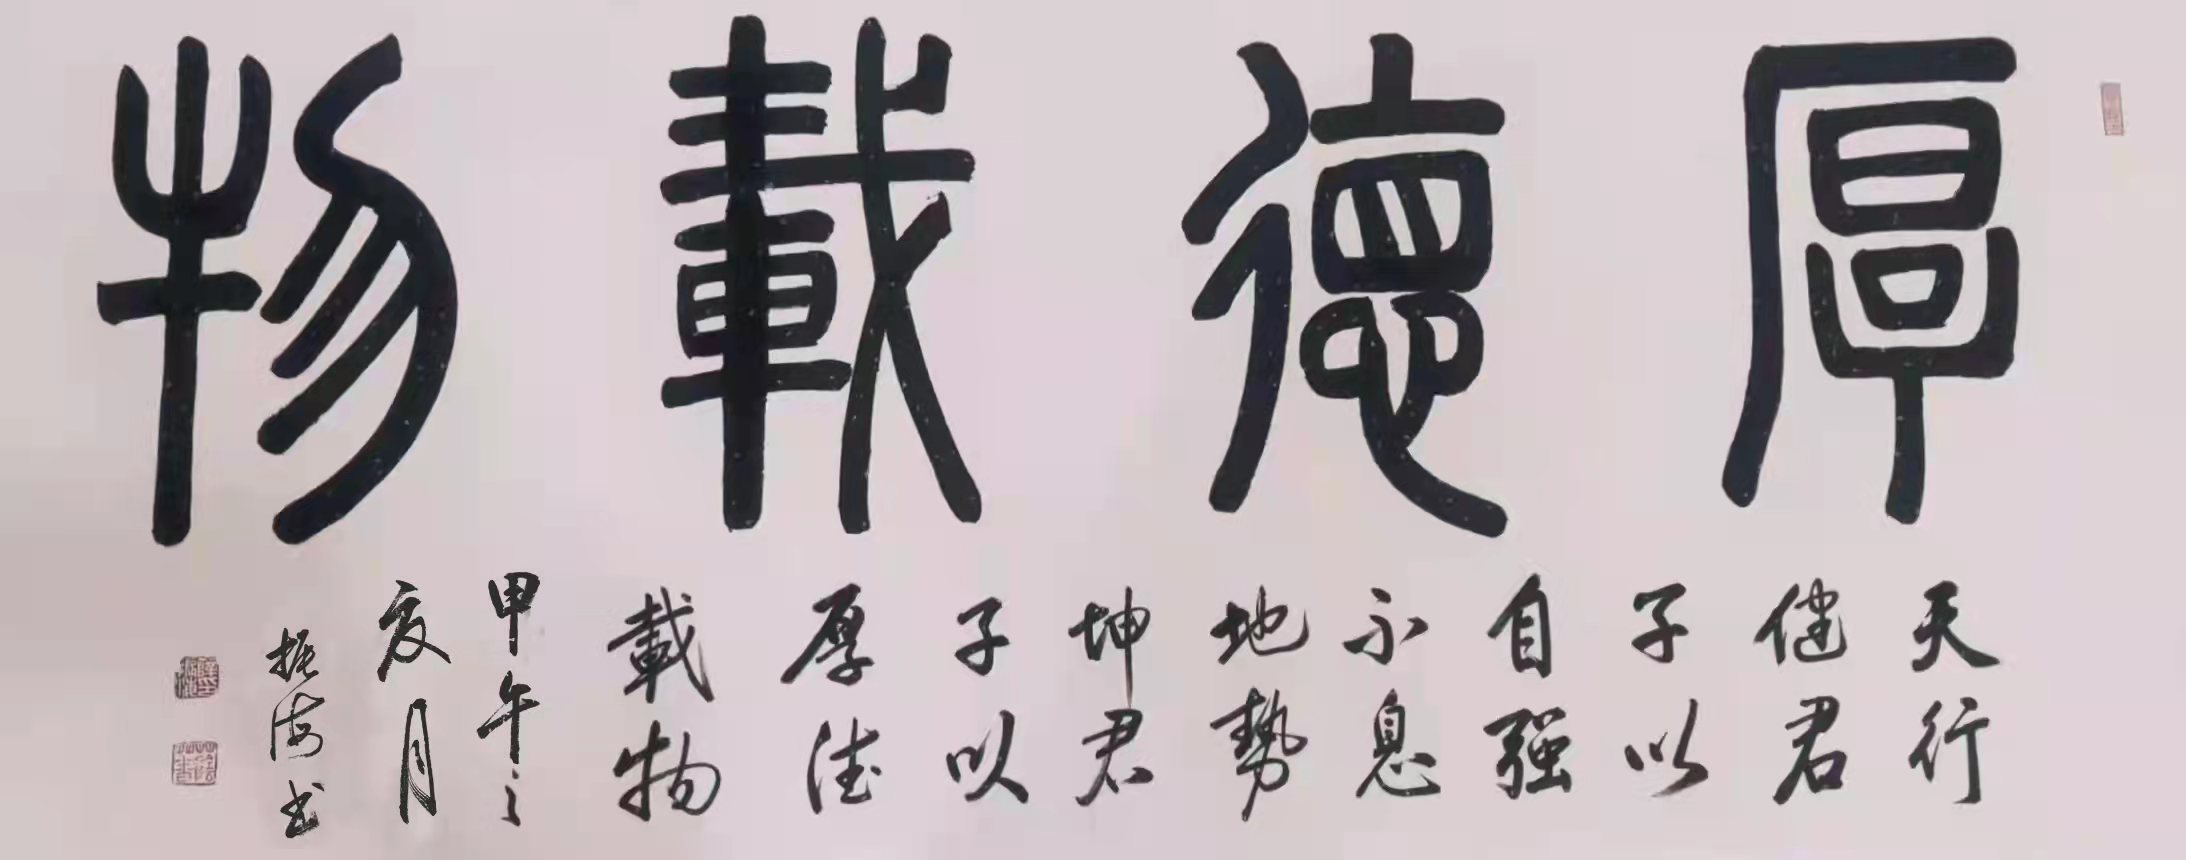 厚德載物
天行
健君
子以
自强
不息
地勢
坤君
子以
厚德
載物
甲午之
夏月
振海书